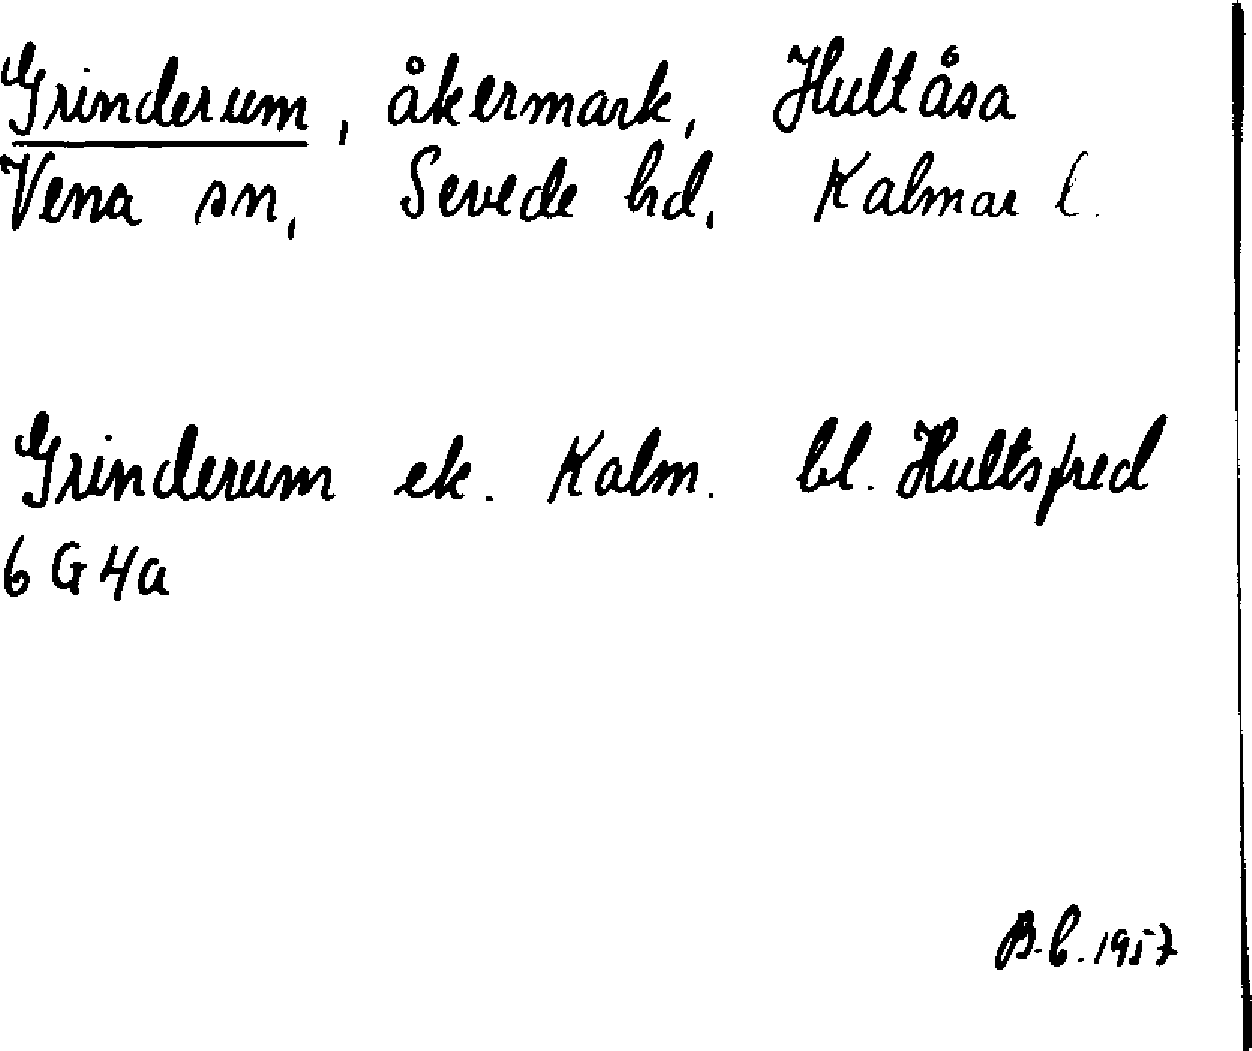 Grinderum, åkermark, Hultåsa
Vena sn, Sevede hd, Kalmar l.
Grinderum ek. Kalm. bl. Hultsfred
6 G 4a
B-b. 1957